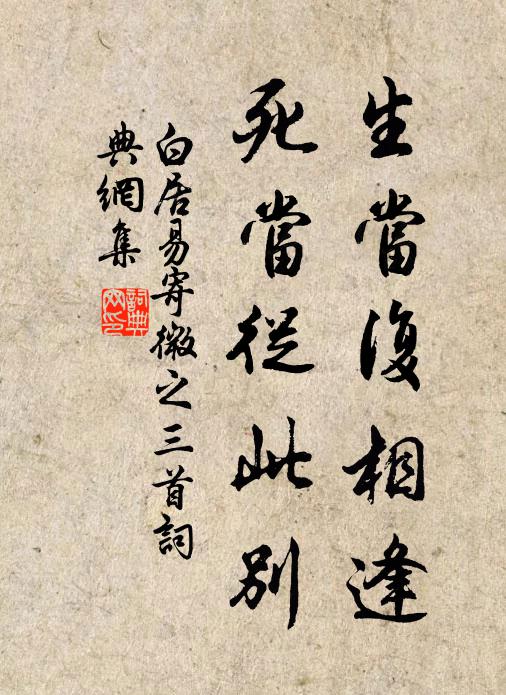 生當復相逢
死當從此別
白居易寄微之三首詞
典網集
詞典網印